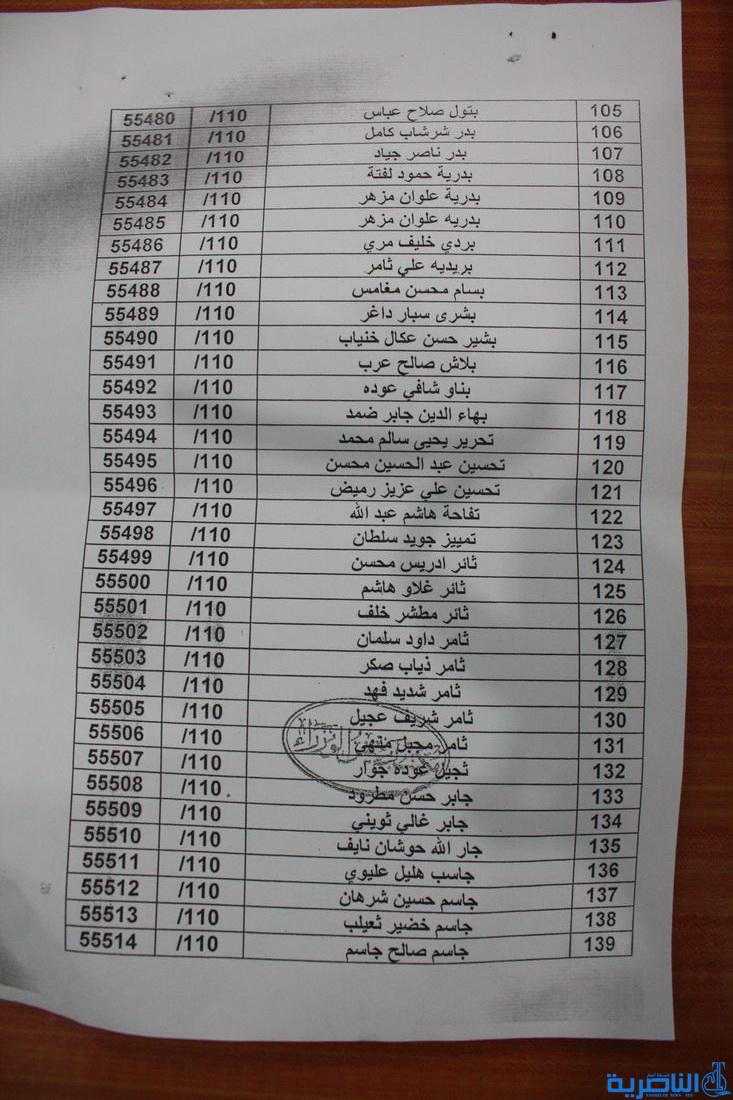 105 بتول صلاح عباس 110/ 55480
106 بدر شرشاب كامل 110/ 55481
107 بدر ناصر جياد 110/ 55482
108 بدرية حمود لفتة 110/ 55483
109 بدرية علوان مزهر 110/ 55484
110 بدريه علوان مزهر 110/ 55485
111 بردي خليف مري 110/ 55486
112 بريديه علي ثامر 110/ 55487
113 بسام محسن مغامس 110/ 55488
114 بشرى سبار داغر 110/ 55489
115 بشير حسن عكال خنياب 110/ 55490
116 بلاش صالح عرب 110/ 55491
117 بناو شافي عوده 110/ 55492
118 بهاء الدين جابر ضمد 110/ 55493
119 تحرير يحيى سالم محمد 110/ 55494
120 تحسين عبد الحسين محسن 110/ 55495
121 تحسين علي عزيز رميض 110/ 55496
122 تفاحة هاشم عبد الله 110/ 55497
123 تمييز جويد سلطان 110/ 55498
124 ثائر ادريس محسن 110/ 55499
125 ثائر غلاو هاشم 110/ 55500
126 ثائر مطشر خلف 110/ 55501
127 ثامر داود سلمان 110/ 55502
128 ثامر ذياب صكر 110/ 55503
129 ثامر شديد فهد 110/ 55504
130 ثامر شريف عجيل 110/ 55505
131 ثامر مجبل منهي 110/ 55506
132 ثجيل عوده جوار 110/ 55507
133 جابر حسن مطرود 110/ 55508
134 جابر غالي ثويني 110/ 55509
135 جار الله حوشان نايف 110/ 55510
136 جاسب هليل عليوي 110/ 55511
137 جاسم حسين شرهان 110/ 55512
138 جاسم خضير ثعيلب 110/ 55513
139 جاسم صالح جاسم 110/ 55514
الناصرية